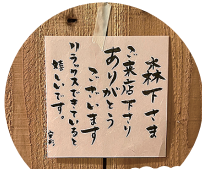 森下さま
ご来店下さり
ありがとう
ございます
リラックスできていると
嬉しいです。